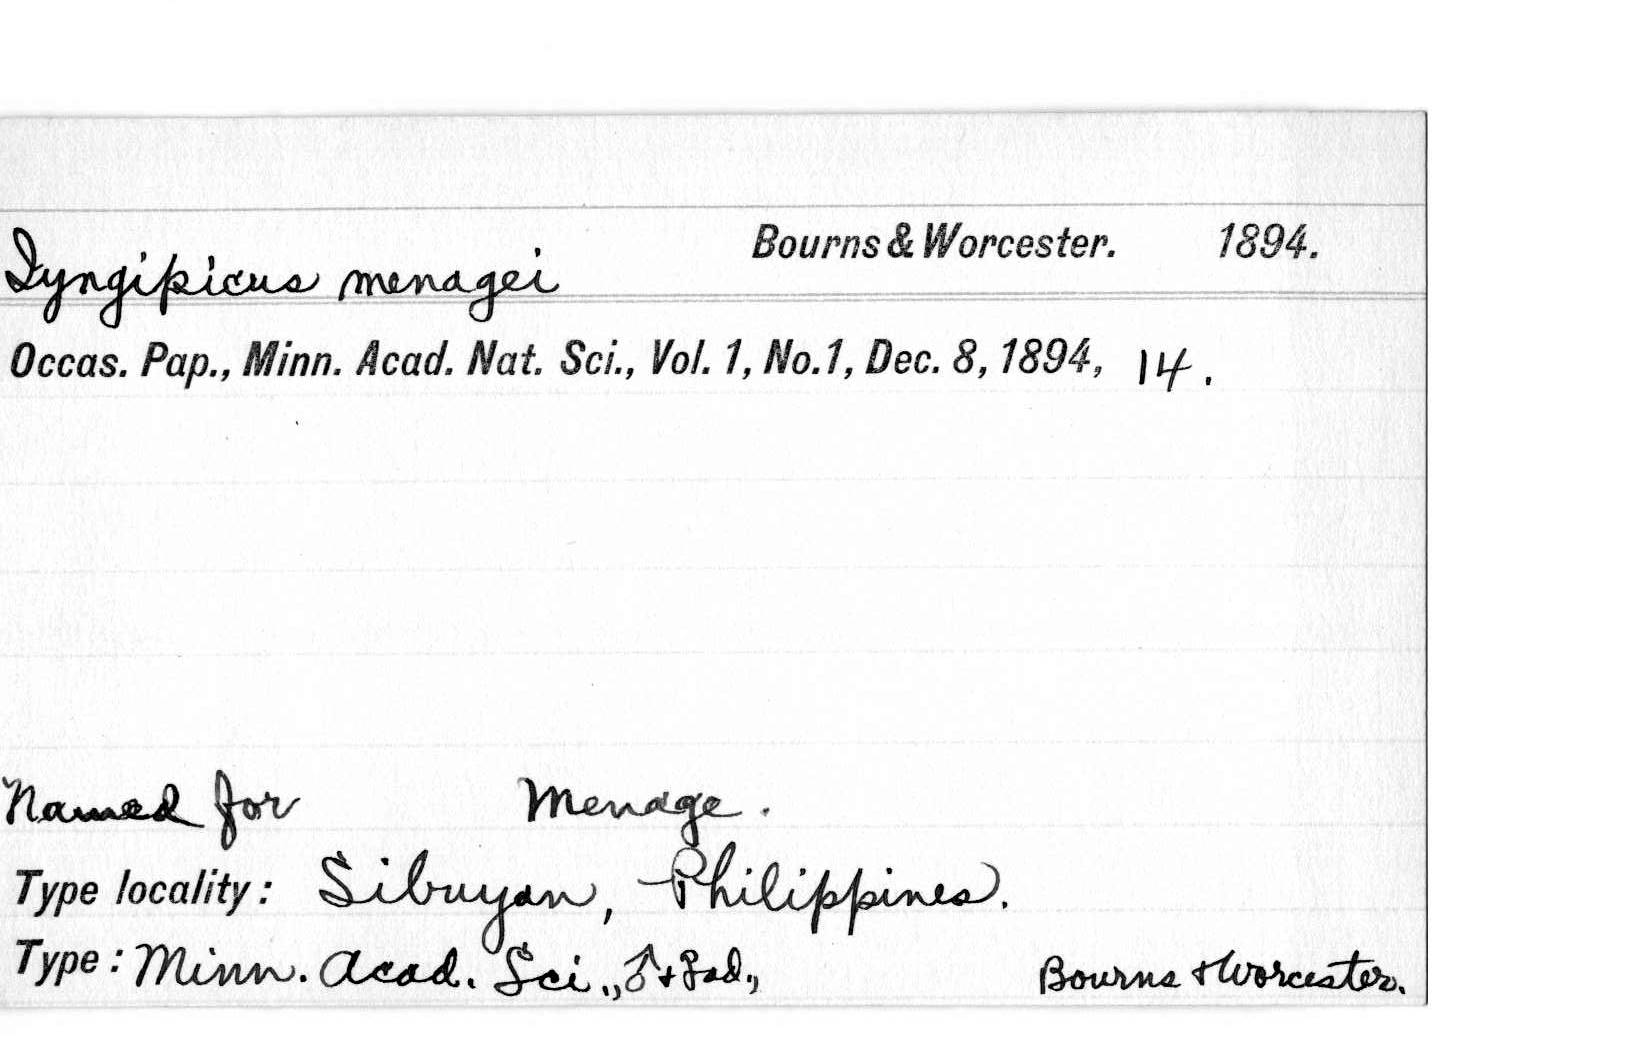 Iyngipicus menagei Bourns & Worcester. 1894.
Occas. Pap., Minn. Acad. Nat. Sci., Vol. 1, No.1, Dec. 8, 1894, 14.
Named for Menage.
Type locality: Sibuyan, Philippines.
Type: Minn. Acad. Sci., ♂ + ♀ ad., Bourns & Worcester.